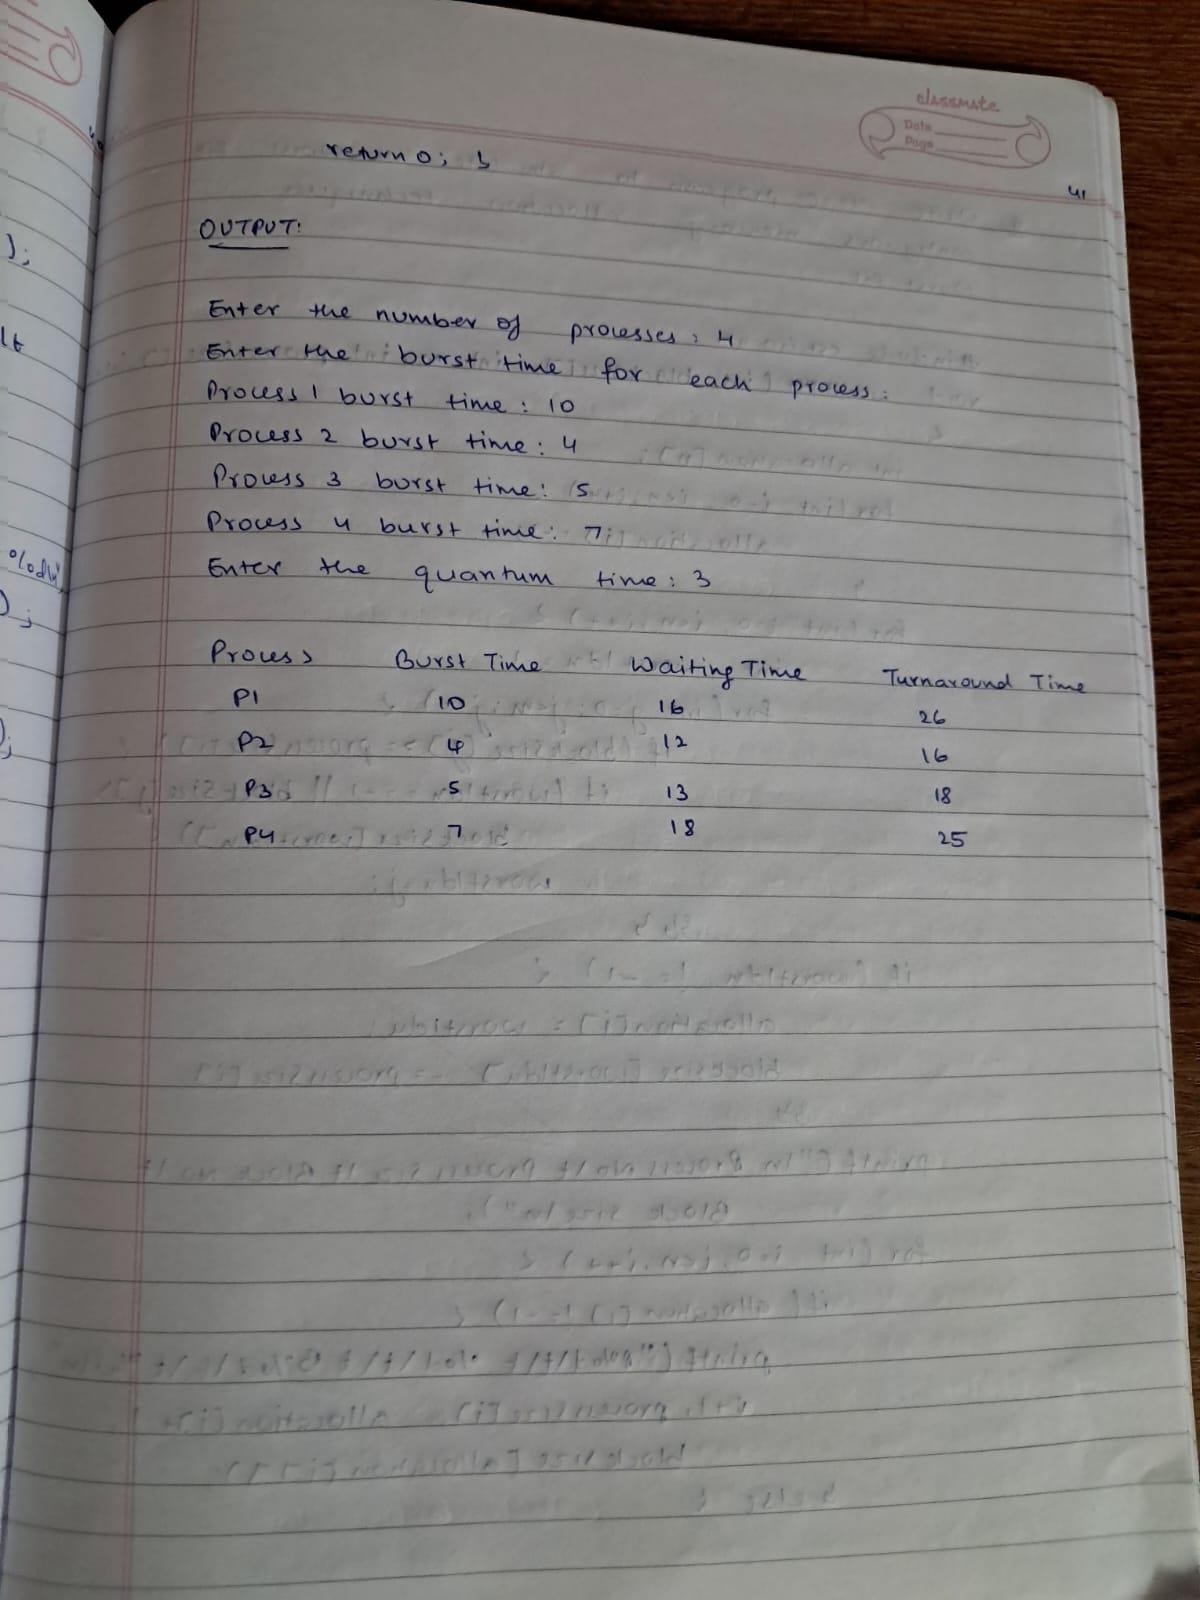 classmate
Date
Page
41
return 0; }
OUTPUT:
Enter the number of processes: 4
Enter the burst time for each process:
Process 1 burst time: 10
Process 2 burst time: 4
Process 3 burst time: 5
Process 4 burst time: 7
Enter the quantum time: 3
Process Burst Time Waiting Time Turnaround Time
P1 10 16 26
P2 4 12 16
P3 5 13 18
P4 7 18 25
);
lt
%d\n"
);
);